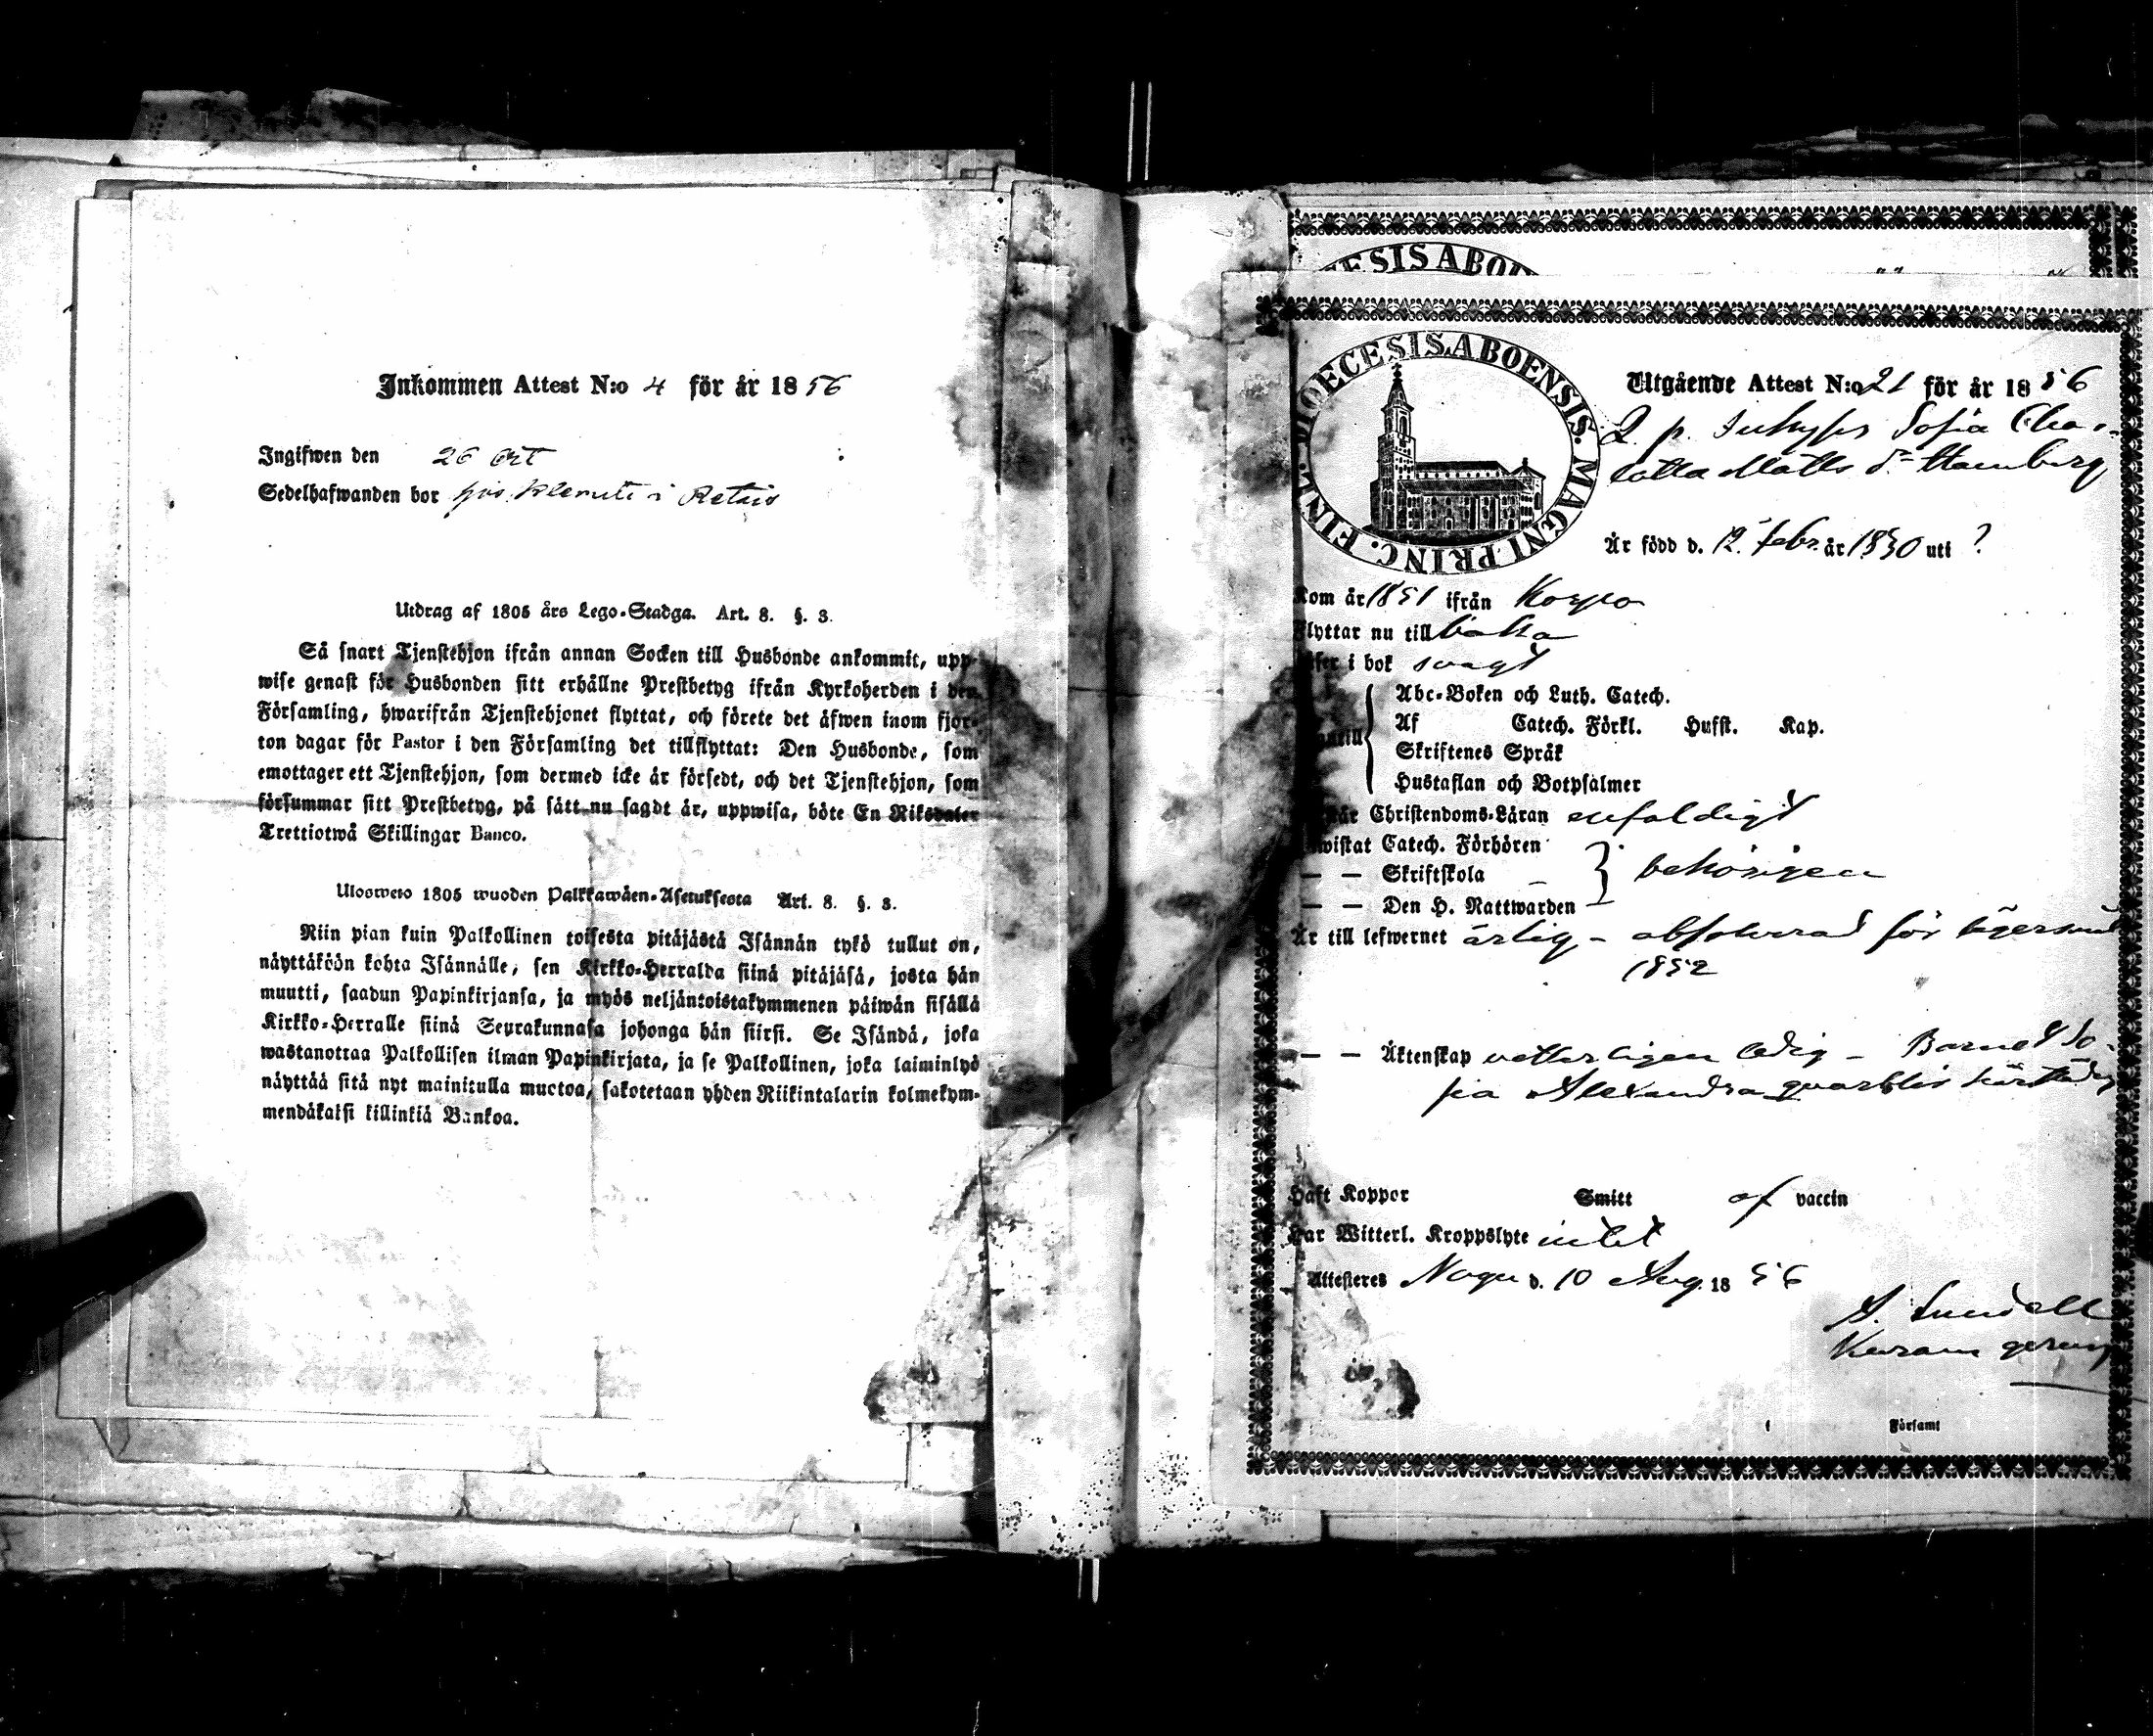 Inkommen Attest N:o 4 för år 1856
Ingifwen den 26 Oct
Sedelhafwanden bor hos Klemets i Retais
Utdrag af 1805 års Lego-Stadga. Art. 8. §. 3.
Så snart Tjenstehjon ifrån annan Socken till Husbonde ankommit, upp-
wise genast för Husbonden sitt erhållne Prestbetyg ifrån Kyrkoherden i den
Församling, hwarifrån Tjenstehjonet flyttat, och förete det äfwen inom fjor-
ton dagar för Pastor i den Församling det tillflyttat: Den Husbonde, som
emottager ett Tjenstehjon, som dermed icke är försedt, och det Tjenstehjon, som
försummar sitt Prestbetyg, på sätt nu sagdt är, uppwisa, böte En Riksdaler
Trettiotwå Skillingar Banco.
Ulosweto 1805 wuoden Palkkawäen-Asetuksesta Art. 8. §. 3.
Niin pian kuin Palkollinen toisesta pitäjästä Isännän tykö tullut on,
näyttäköön kohta Isännälle, sen Kirkko-Herralda siinä pitäjäsä, josta hän
muutti, saadun Papinkirjansa, ja myös neljäntoistakymmenen päiwän sisällä
Kirkko-Herralle siinä Seurakunnasa johonga hän siirsi. Se Isändä, joka
wastanottaa Palkollisen ilman Papinkirjata, ja se Palkollinen, joka laiminlyö
näyttää sitä nyt mainitulla muotoa, sakotetaan yhden Riikintalarin kolmekym-
mendäkaksi killinkiä Bankoa.
ESIS ABO
DIOECESIS ABOENSIS. MAGNI PRINC. FINL.
Utgående Attest N:o 21 för år 1856
Q. p. Inhyses Sofia Char-
lotta Matts dr Hamberg
Är född d. 12 Febr. år 1830 uti ?
Kom år 1851 ifrån Korpo
Flyttar nu till baka
Läser i bok svagt
Abc-Boken och Luth. Catech.
Af Catech. Förkl. Husst. Kap.
Skriftenes Språk
Hustaflan och Botpsalmer
Christendoms-Läran enfaldigt
Catech. Förhören
— — Skriftskola } behörigen
— — Den H. Nattwarden
Är till lefwernet ärlig - absolverad för lägersmål
1852
— — Äktenskap vetterligen ledig - Barnet So-
fia Alexandra qvarblir härstädes
Haft Koppor Smitt af vaccin
Har Witterl. Kroppslyte intet
Attesteres Nagu d. 10 Aug. 1856
A. Sundell
Församl